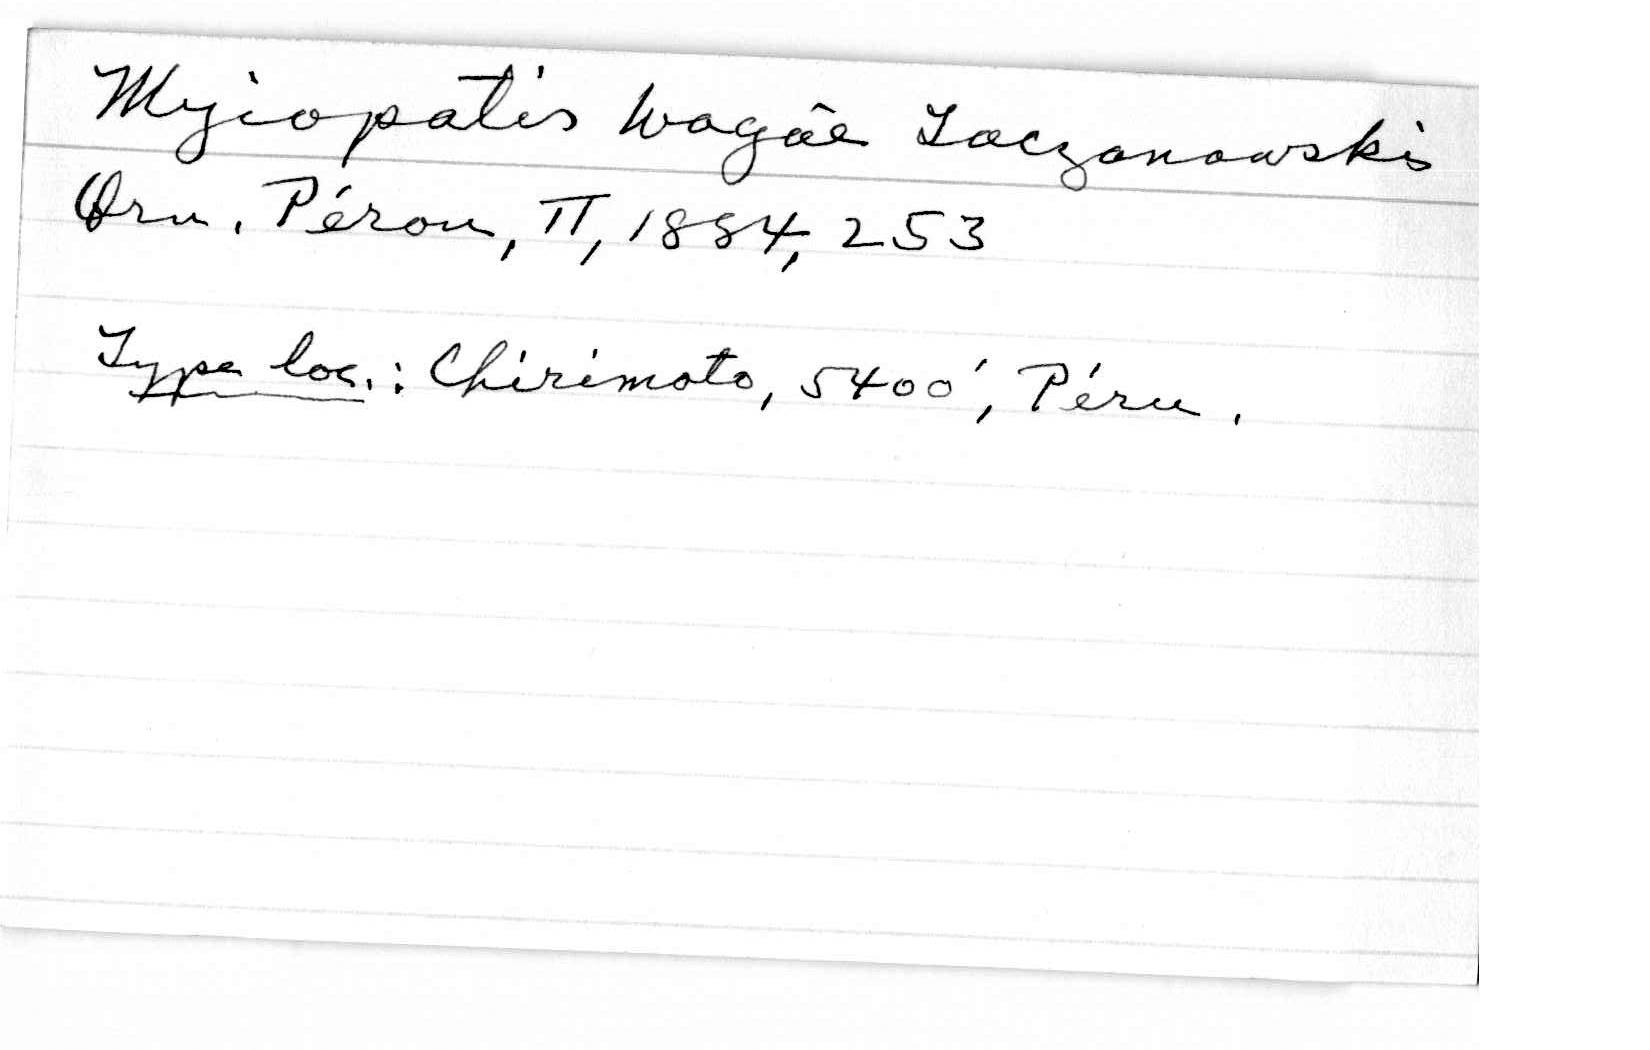 Myiopatis wagae Taczanowski
Orn. Pérou, II, 1884, 253
Type loc.: Chirimoto, 5400', Péru.